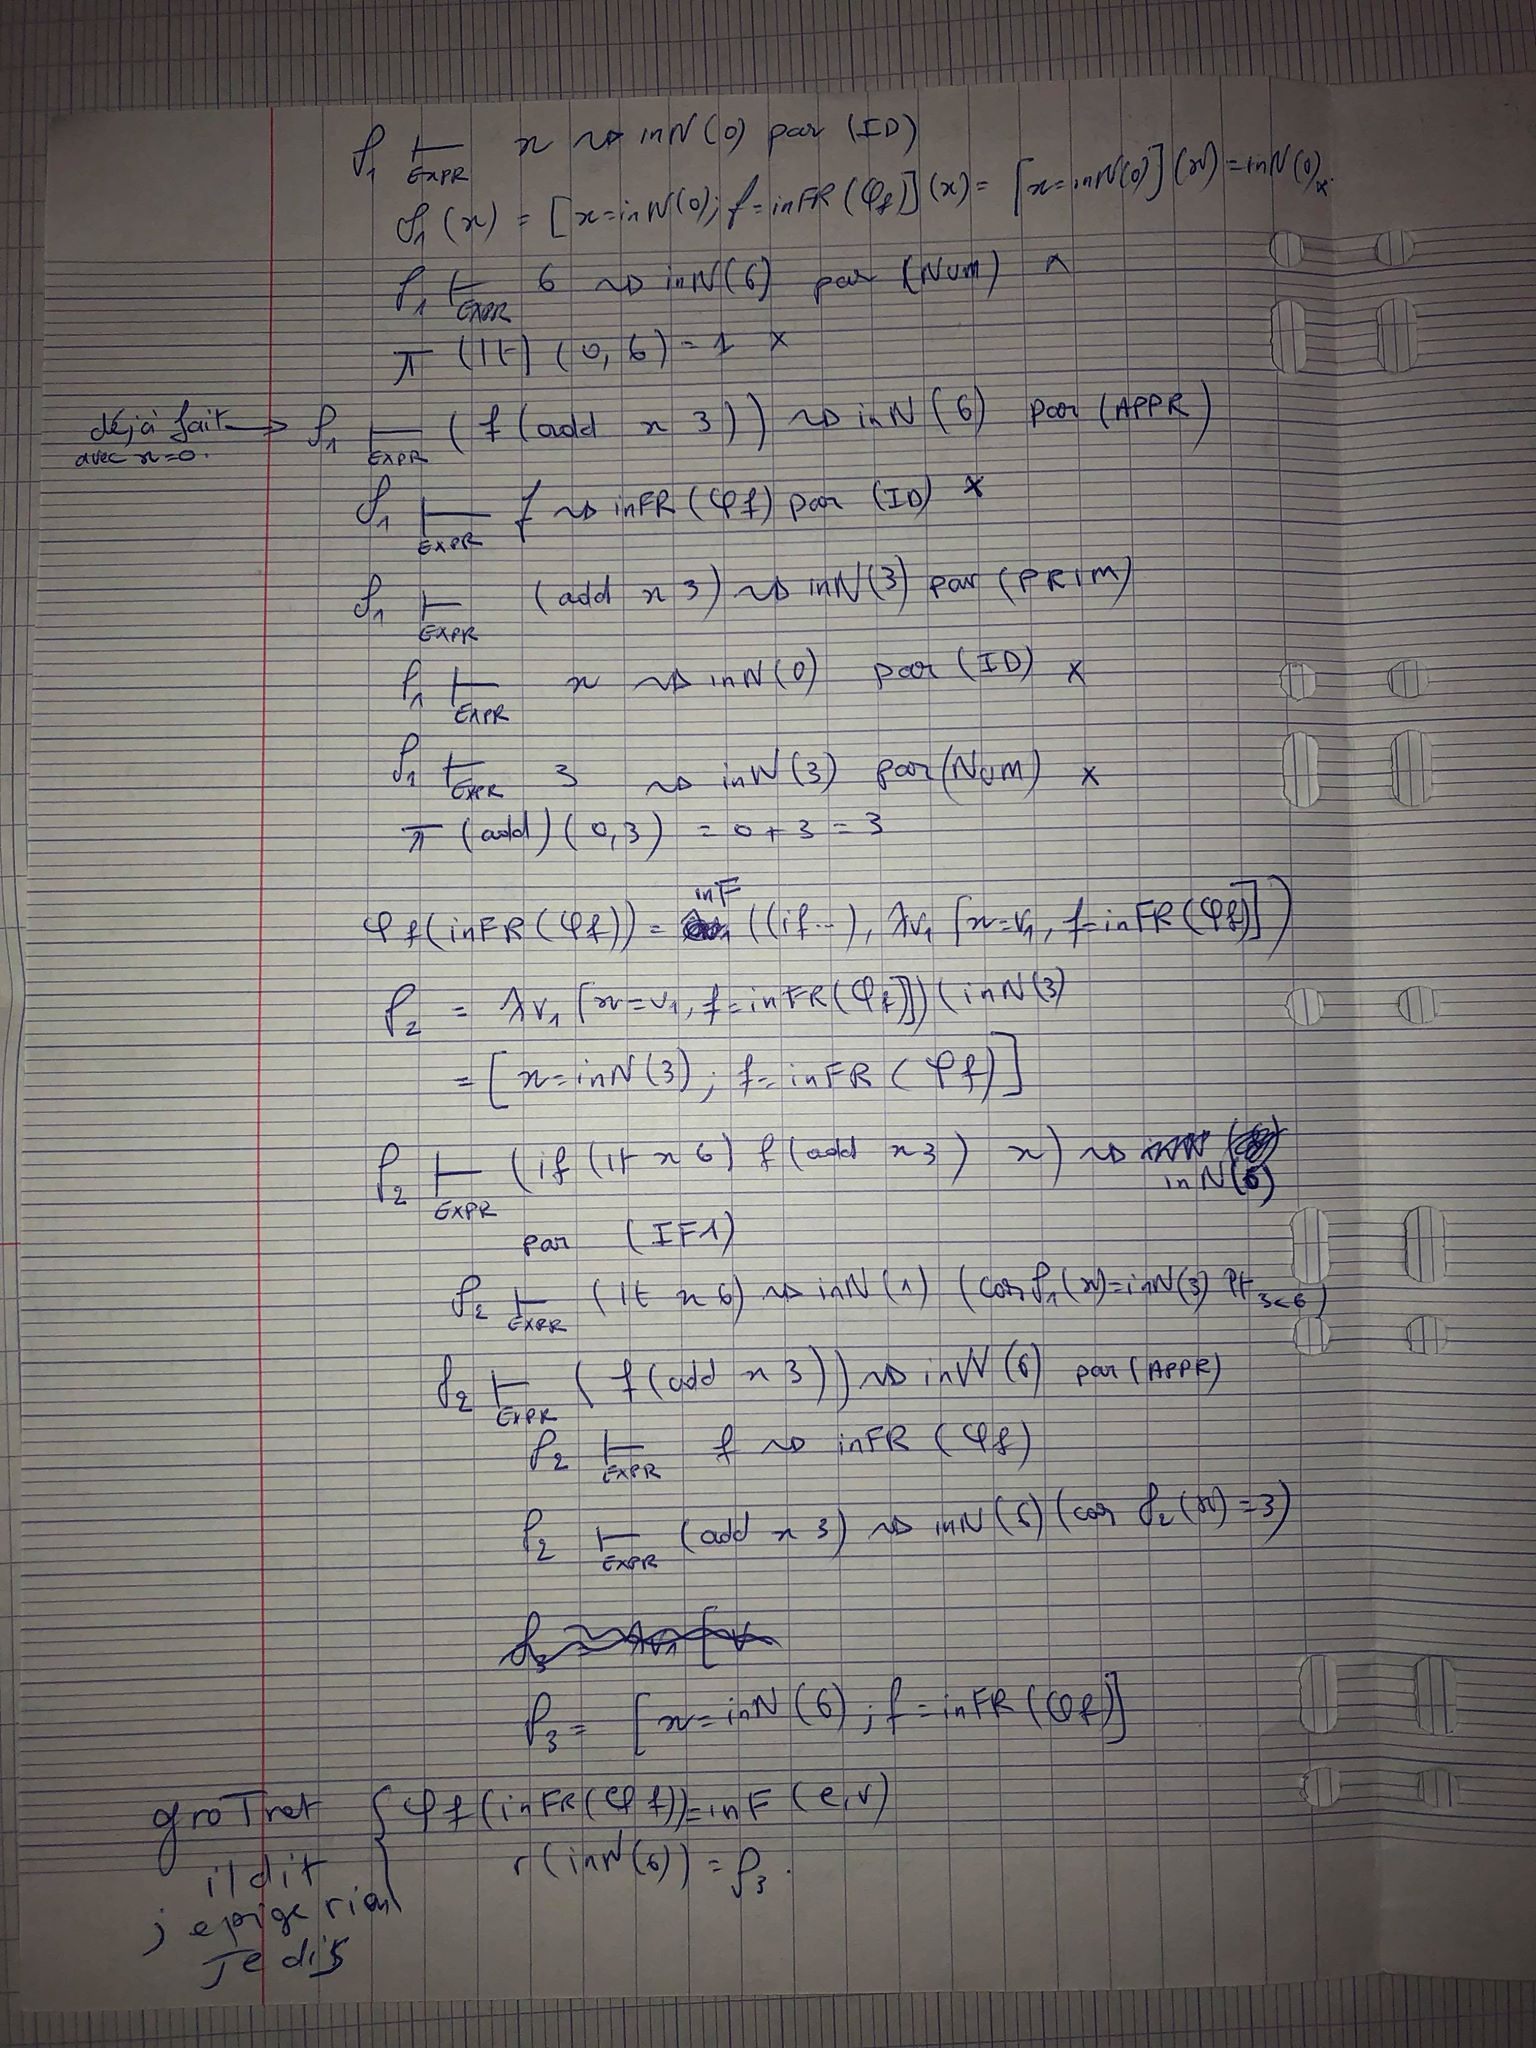 ρ₁ ⊢EXPR x ⇝ inN(0) par (ID)
ρ₁(x) = [x=inN(0); f=inFR(φf)](x) = [x=inN(0)](x) = inN(0) x
ρ₁ ⊢EXPR 6 ⇝ inN(6) par (NUM) x
π (lt) (0,6) = 1 x
déjà fait avec x=0. → ρ₁ ⊢EXPR (f (add x 3)) ⇝ inN(6) par (APPR)
ρ₁ ⊢EXPR f ⇝ inFR(φf) par (ID) x
ρ₁ ⊢EXPR (add x 3) ⇝ inN(3) par (PRIM)
ρ₁ ⊢EXPR x ⇝ inN(0) par (ID) x
ρ₁ ⊢EXPR 3 ⇝ inN(3) par (NUM) x
π (add) (0,3) = 0+3 = 3
φf(inFR(φf)) = inF ((if...), λv₁ [x=v₁, f=inFR(φf)])
ρ₂ = λv₁ [x=v₁, f=inFR(φf)])(inN(3)
= [x=inN(3); f=inFR(φf)]
ρ₂ ⊢EXPR (if (lt x 6) f (add x 3) x) ⇝ inN(6)
par (IF1)
ρ₂ ⊢EXPR (lt x 6) ⇝ inN(1) (car ρ₁(x)=inN(3) et 3<6)
ρ₂ ⊢EXPR (f (add x 3)) ⇝ inN(6) par (APPR)
ρ₂ ⊢EXPR f ⇝ inFR(φf)
ρ₂ ⊢EXPR (add x 3) ⇝ inN(6) (car ρ₂(x)=3)
ρ₃ = [x=inN(6); f=inFR(φf)]
groTret { φf(inFR(φf))=inF(e,r)
il dit r(inN(6)) = ρ₃.
j epige rien
Je dis